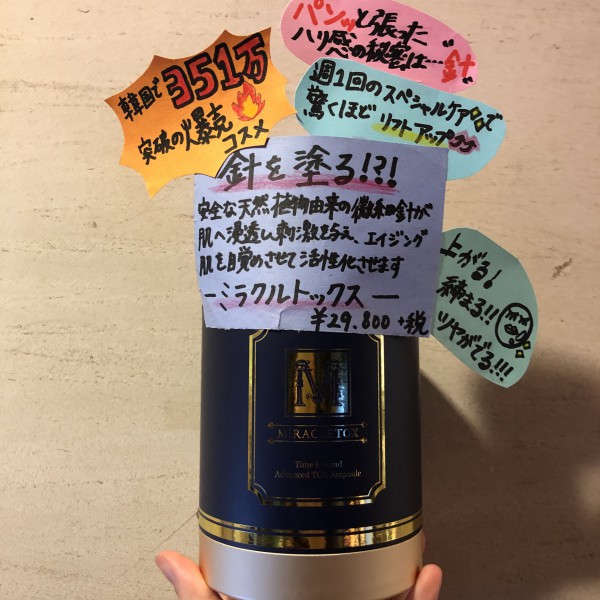 パンッと張った
ハリ感の秘密は…"針"
韓国で351万
突破の爆売
コスメ
週1回のスペシャルケアで
驚くほどリフトアップ
針を塗る!?!
安全な天然植物由来の微細針が
肌へ浸透し刺激を与え、エイジング
肌を目覚めさせて活性化させます
ーミラクルトックスー
¥29.800+税
上がる!
締まる!!
ツヤがでる!!!
M
MIRACLETOX
Time Rewind
Advanced TOX Ampoule